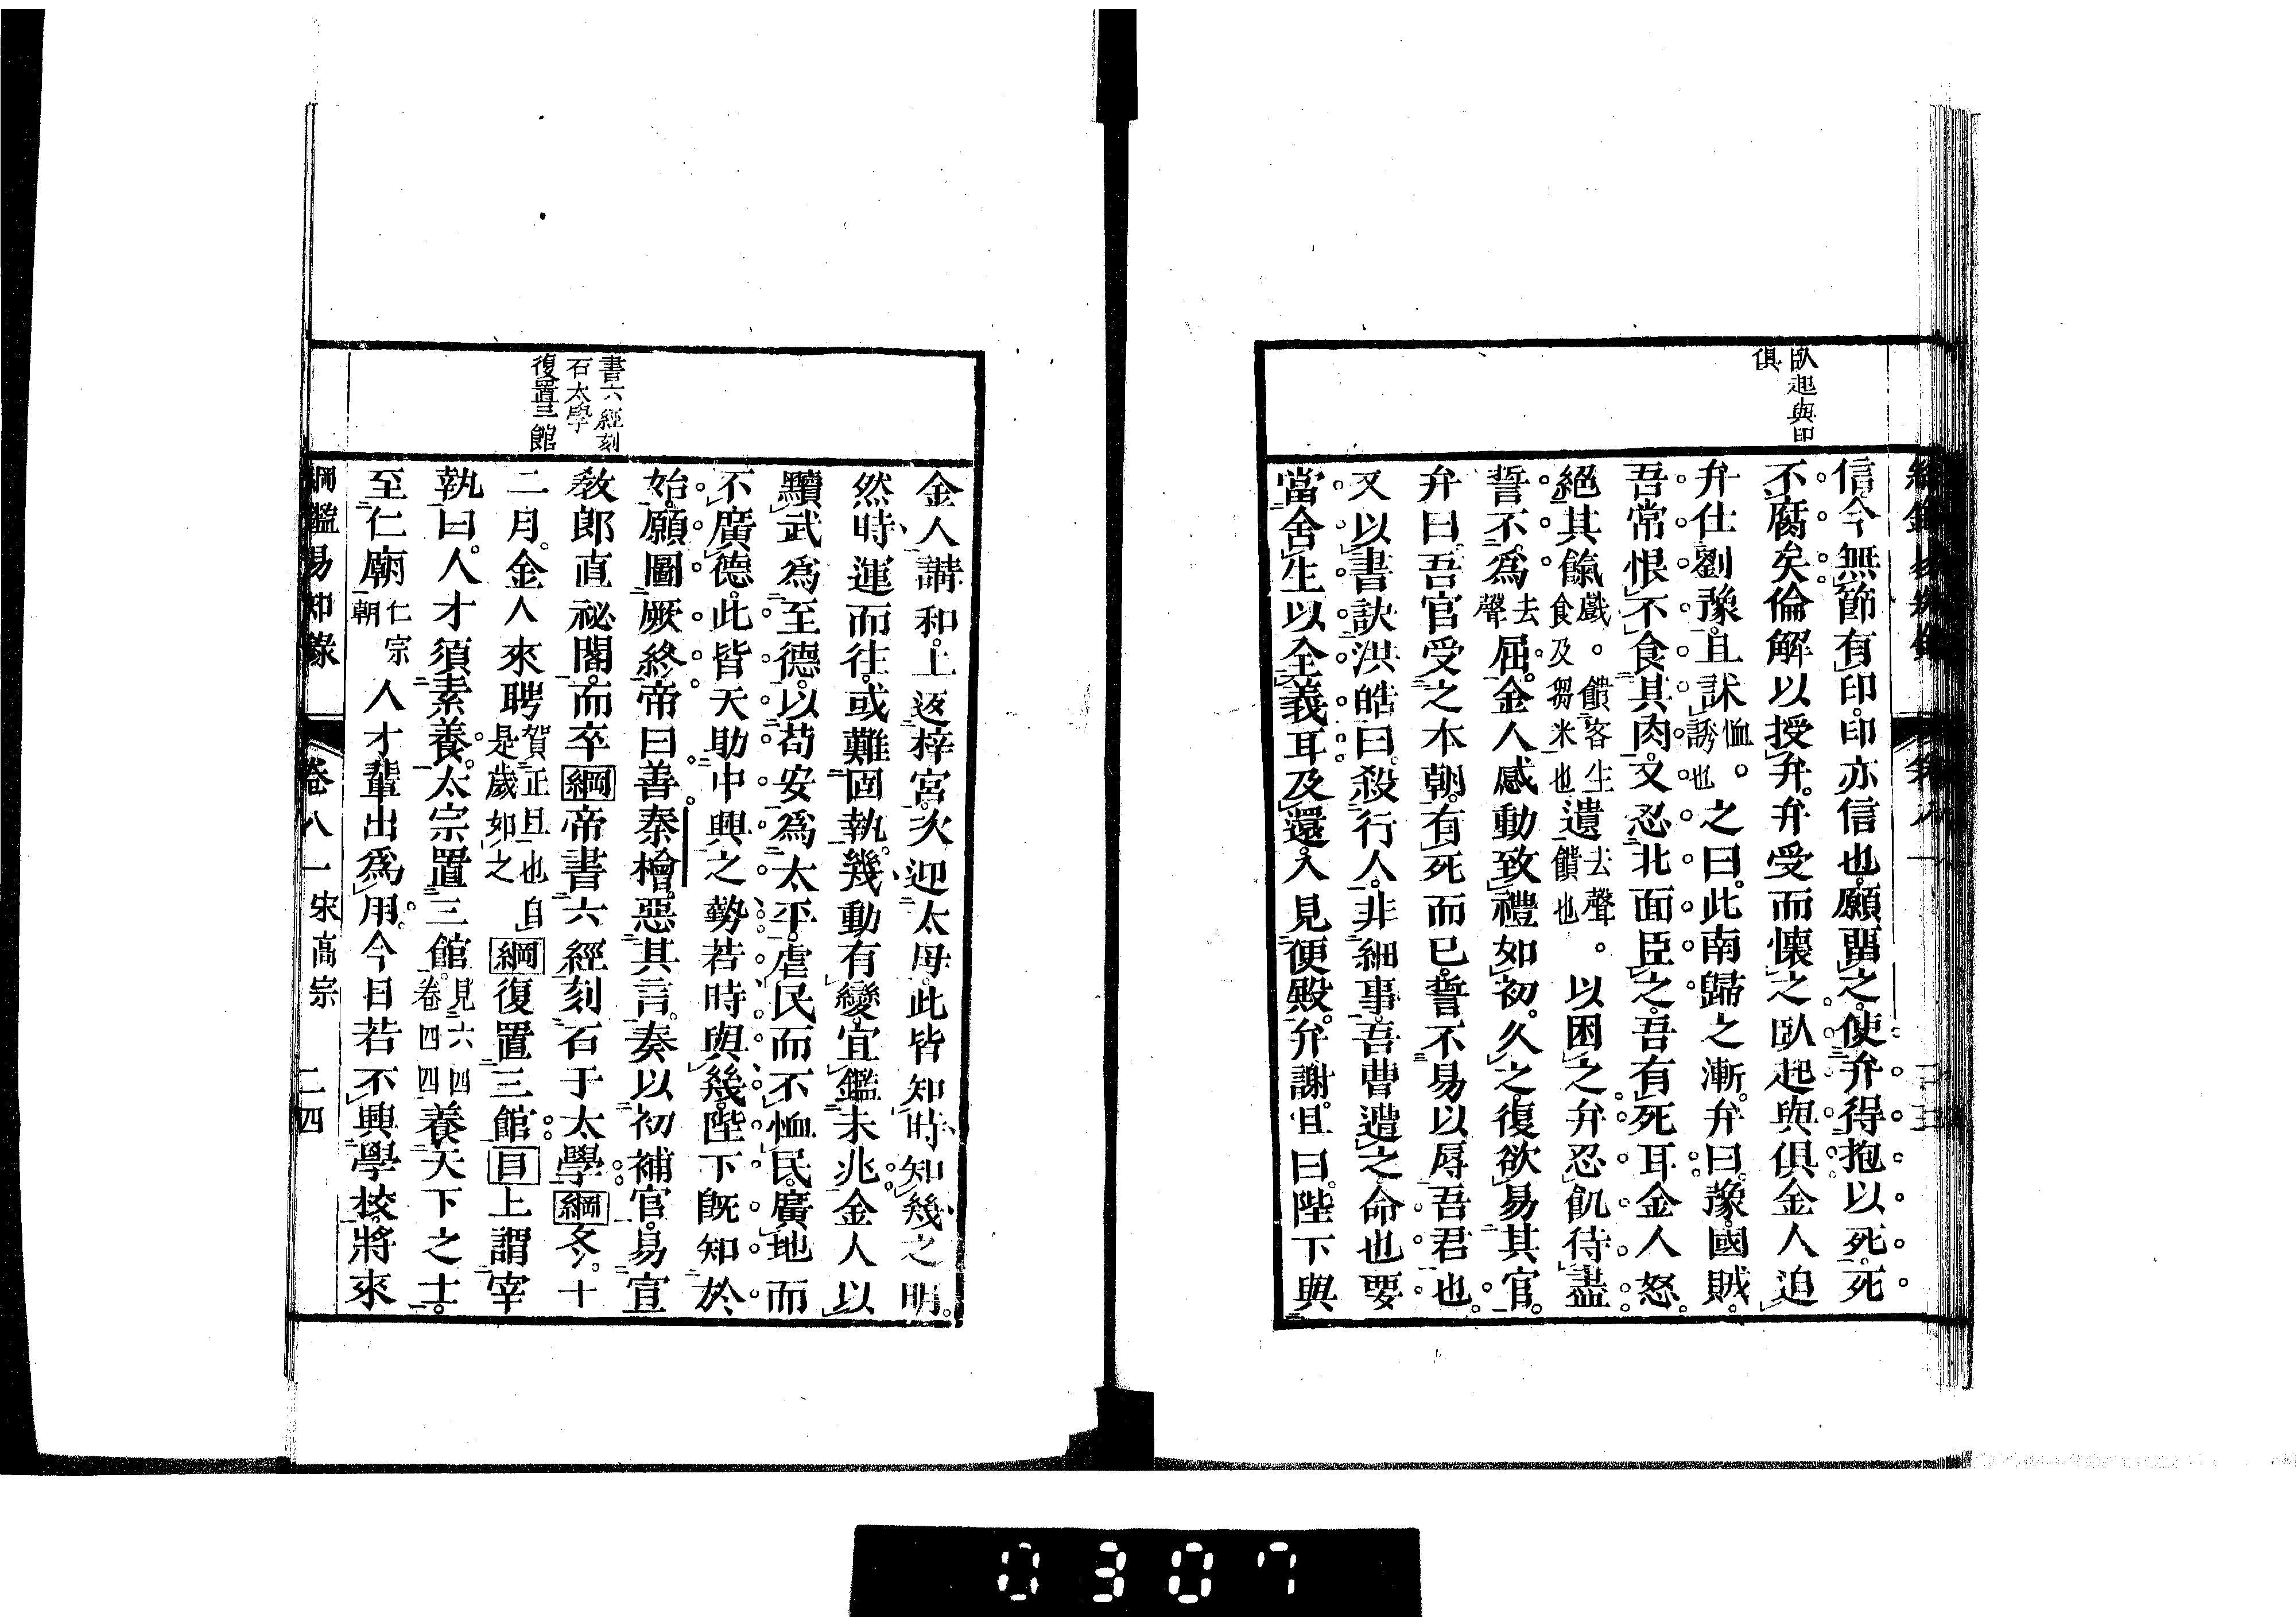 臥起與印
俱
信今無節有印。印亦信也。願留之。使弁得抱以死。死
不腐矣。倫解以授弁。弁受而懷之。臥起與俱。金人迫
弁仕劉豫。且訹恤。誘也。之曰。此南歸之漸。弁曰。豫國賊。
吾常恨不食其肉。又忍北面臣之。吾有死耳。金人怒。
絕其餼戲。饋客生食及芻米也遺去聲。饋也以困之。弁忍飢待盡。
誓不爲去聲屈。金人感動。致禮如初。久之。復欲易其官。
弁曰。吾官受之本朝。有死而已。誓不易以辱吾君也。
又以書訣洪皓曰。殺行人。非細事。吾曹遭之。命也。要
當舍生以全義耳。及還。入見便殿。弁謝。且曰。陛下與
書六經刻
石太學
復置三館
金人講和。上返梓宮。次迎太母。此皆知時知幾之明。
然時運而往。或難固執。幾動有變。宜鑑未兆。金人以
黷武爲至德。以苟安爲太平。虐民而不恤民。廣地而
不廣德。此皆天助中興之勢。若時與幾。陛下既知於
始。願圖厥終。帝曰善。秦檜惡其言。奏以初補官。易宣
敎郎直祕閣。而卒綱帝書六經刻石于太學綱冬。十
二月。金人來聘賀正旦也自是歲如之綱復置三館目上謂宰
執曰。人才須素養。太宗置三館。見六四卷四四養天下之士。
至仁廟仁宗朝人才輩出爲用。今日若不興學校。將來
綱鑑易知錄 卷八一 宋高宗 二四